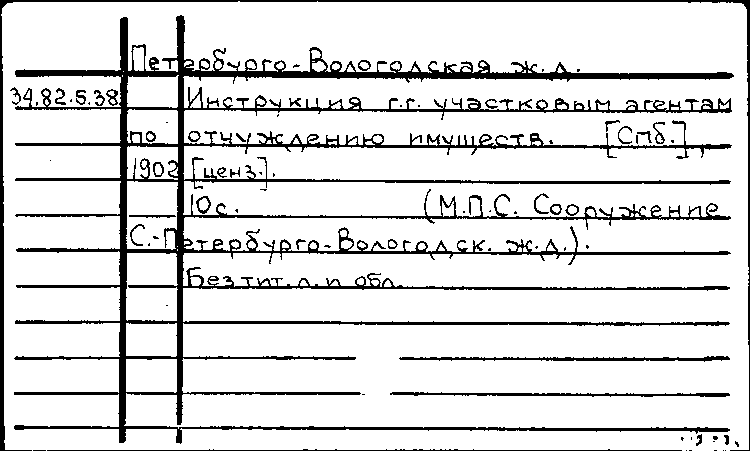 Петербурго-Вологодская ж.д.
34.82.5.38 Инструкция г.г. участковым агентам
по отчуждению имуществ. [Спб.],
1902 [ценз.].
10с. (М.П.С. Сооружение
С.-Петербурго-Вологодск. ж.д.).
Без тит. л. и обл.